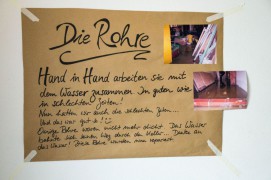 Die Rohre
Hand in Hand arbeiten sie mit
dem Wasser zusammen. In guten wie
in schlechten Zeiten!
Nun hatten wir auch die schlechten Zeiten...
Und das war gut so!
Einige Rohre waren nicht mehr dicht. Das Wasser
bahnte sich seinen Weg durch den Keller... Danke an
das Wasser! Diese Rohre wurden nun repariert